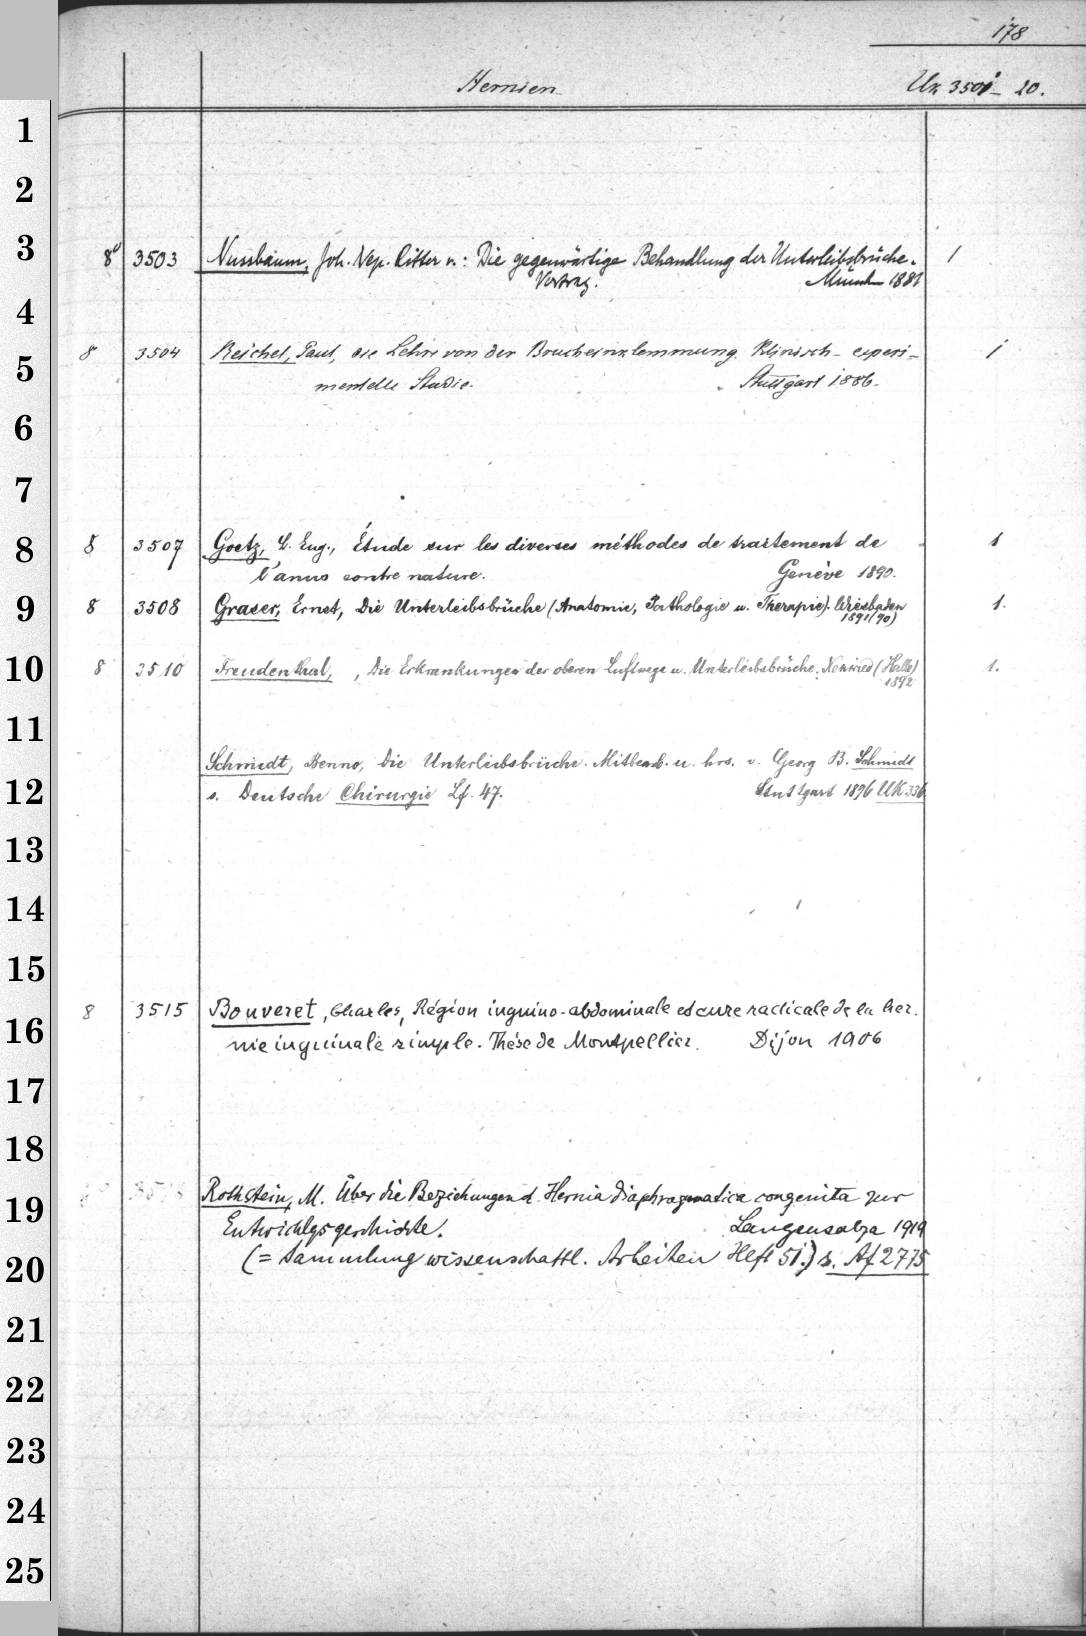 178
Hernien
Uk 3501 - 20.
1
2
3
8° 3503 Nussbaum, Joh. Nep. Ritter v.: Die gegenwärtige Behandlung der Unterleibsbrüche. 1
Vortrag. München 1881
4
8 3504 Reichel, Paul, die Lehre von der Brucheinklemmung. Klinisch- experi- 1
5
mentelle Studie. Stuttgart 1886.
6
7
8 8 3507 Goetz, Eug., Étude sur les diverses méthodes de traitement de 1
l'anus contre nature. Genève 1890.
9 8 3508 Graser, Ernst, Die Unterleibsbrüche (Anatomie, Pathologie u. Therapie). Wiesbaden 1.
1891(90)
10 8 3510 Freudenthal, , Die Erkrankungen der oberen Luftwege u. Unterleibsbrüche. Neuwied (Halle) 1.
1892
11
Schmidt, Benno, Die Unterleibsbrüche. Mitbearb. u. hrs. v. Georg B. Schmidt
12 s. Deutsche Chirurgie Lf. 47. Stuttgart 1896 UK 336
13
14
15
8 3515 Bouveret, Charles, Région inguino-abdominale et cure radicale de la her-
16
nie inguinale simple. Thése de Montpellier. Dijon 1906
17
18
Rothstein, M. Über die Beziehungen d. Hernia diaphragmatica congenita zur
19
Entwicklgsgeschichte. Langensalza 1919
20 (= Sammlung wissenschaftl. Arbeiten Heft 51.) s. Af 2775
21
22
23
24
25